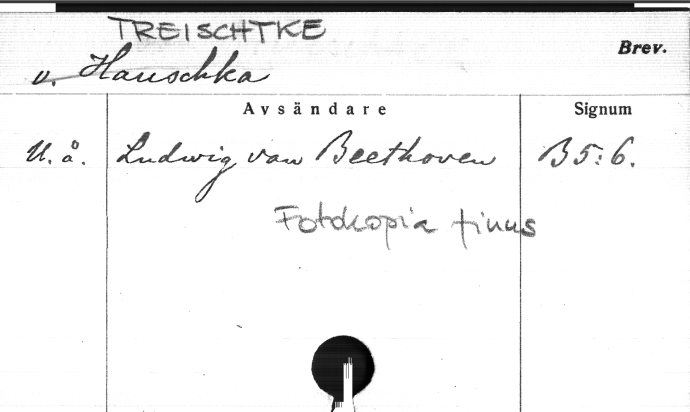 TREISCHTKE
Brev.
v. Hauschka
Avsändare
Signum
U. å. Ludwig van Beethoven B 5:6.
Fotokopia finns